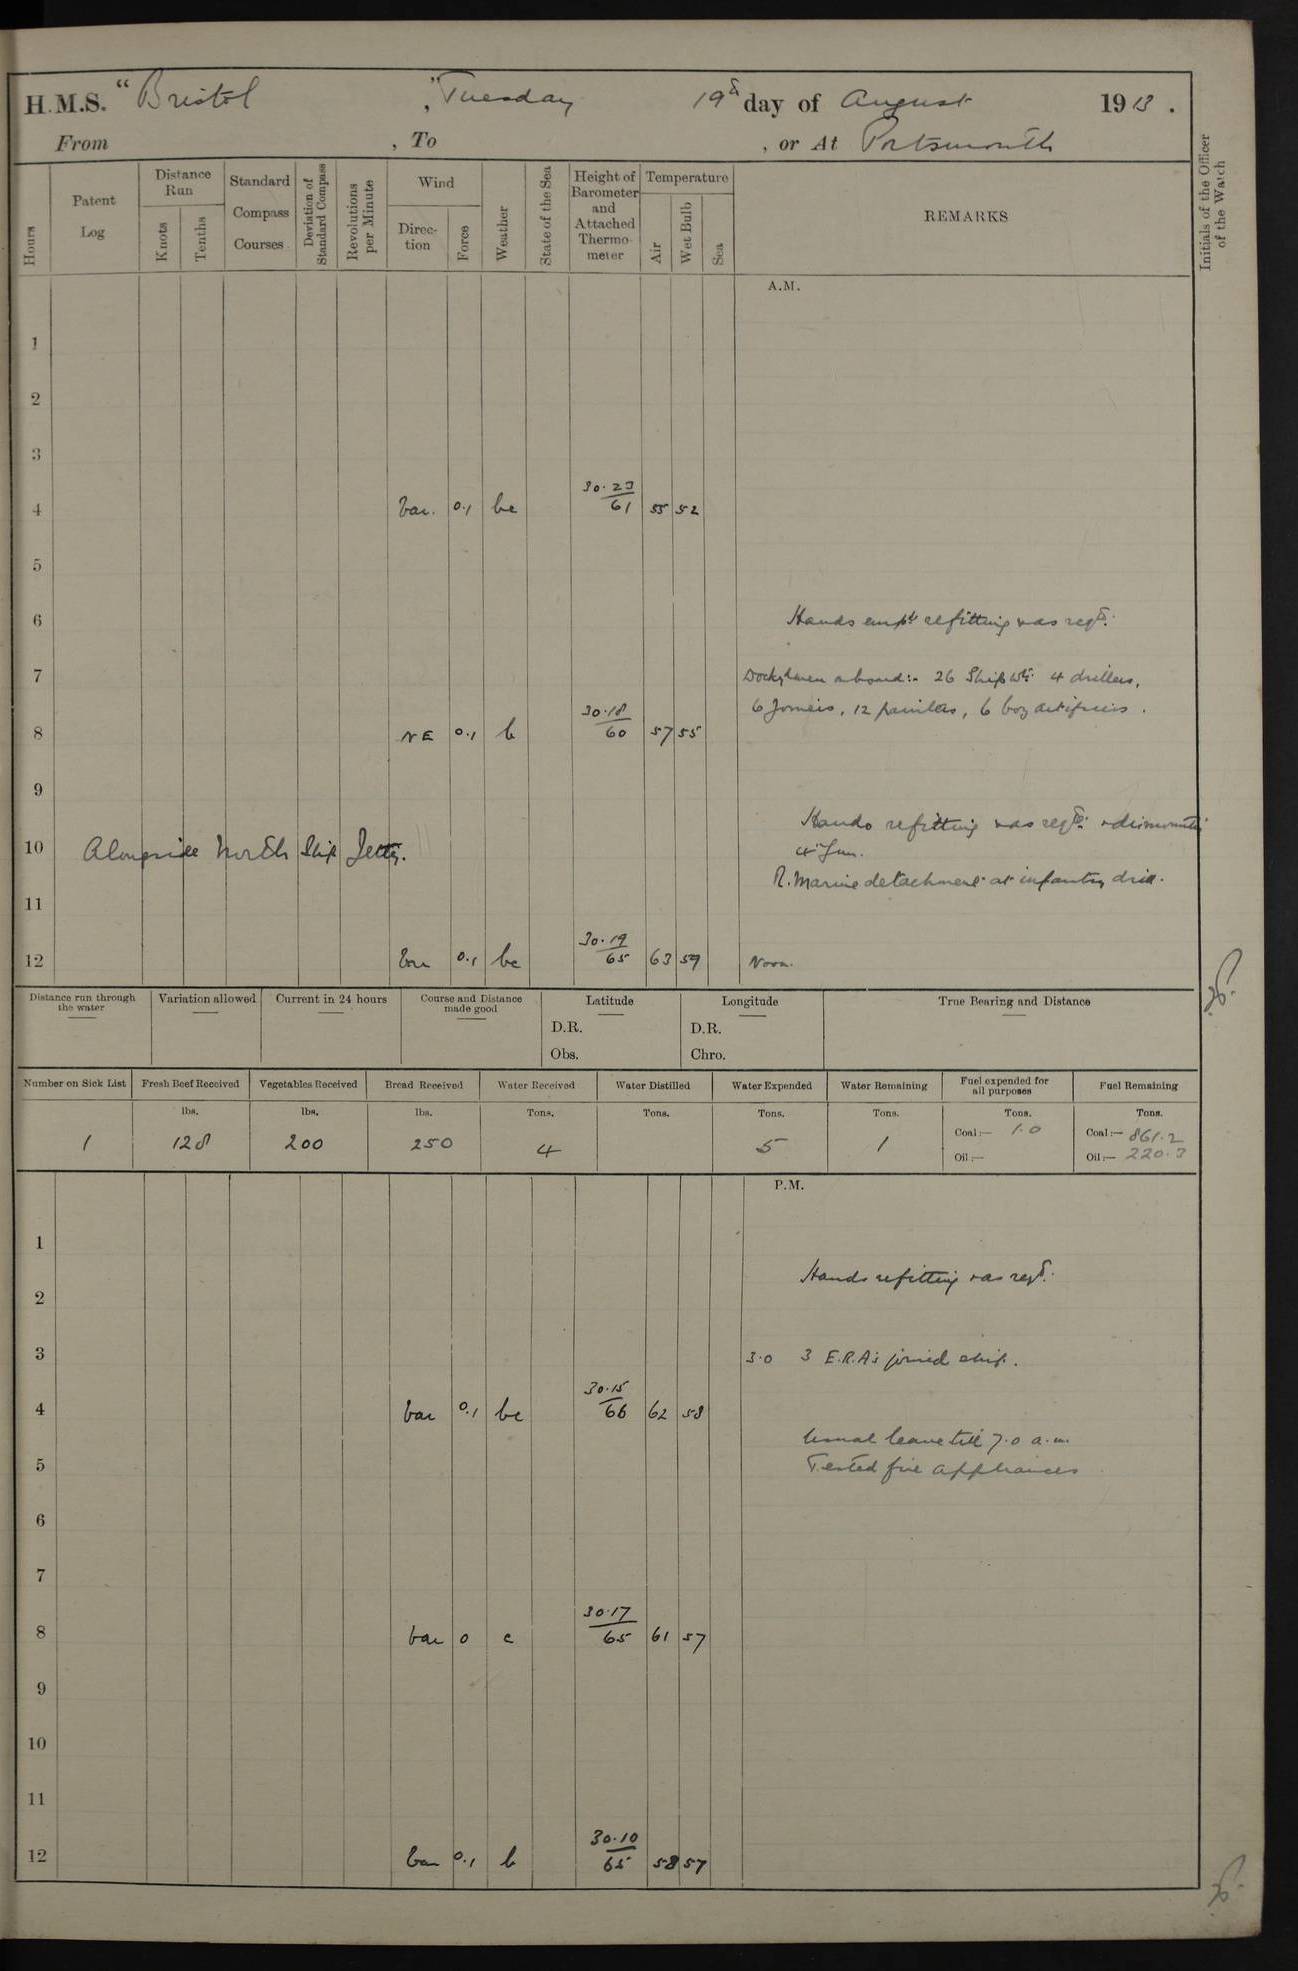 H.M.S. "Bristol", Tuesday 19th day of August 1913.
From , To , or At Portsmouth
Hours
Patent Log
Distance Run
Knots
Tenths
Standard Compass Courses
Deviation of Standard Compass
Revolutions per Minute
Wind
Direction
Force
Weather
State of the Sea
Height of Barometer and Attached Thermometer
Temperature
Air
Wet Bulb
Sea
REMARKS
Initials of the Officer of the Watch
A.M.
1
2
3
4 Var. 0.1 bc 30.23/61 55 52
5
6 Hands empd refitting & as reqd.
7 Dockymen aboard:- 26 Shipwts 4 drillers,
6 Joiners, 12 painters, 6 boy artificers.
8 NE 0.1 b 30.18/60 57 55
9
Hands refitting & as reqd. & dismounting
10 Alongside North Ship Jetty. 4" Gun.
R. Marine detachment at infantry drill.
11
12 Var 0.1 bc 30.19/65 63 59 Noon.
Distance run through the water
Variation allowed
Current in 24 hours
Course and Distance made good
Latitude
D.R.
Obs.
Longitude
D.R.
Chro.
True Bearing and Distance
Number on Sick List
Fresh Beef Received
Vegetables Received
Bread Received
Water Received
Water Distilled
Water Expended
Water Remaining
Fuel expended for all purposes
Fuel Remaining
lbs. lbs. lbs. Tons. Tons. Tons. Tons. Tons. Tons.
1 128 200 250 4 5 1 Coal:— 1.0 Coal:— 861.2
Oil:— Oil:— 220.3
P.M.
1
Hands refitting & as reqd.
2
3 3.0 3 E.R.A's joined ship.
4 Var 0.1 bc 30.15/66 62 58
Usual leave till 7.0 a.m.
5 Tested fire appliances
6
7
8 Var 0 c 30.17/65 61 57
9
10
11
12 Var 0.1 b 30.10/65 58 57